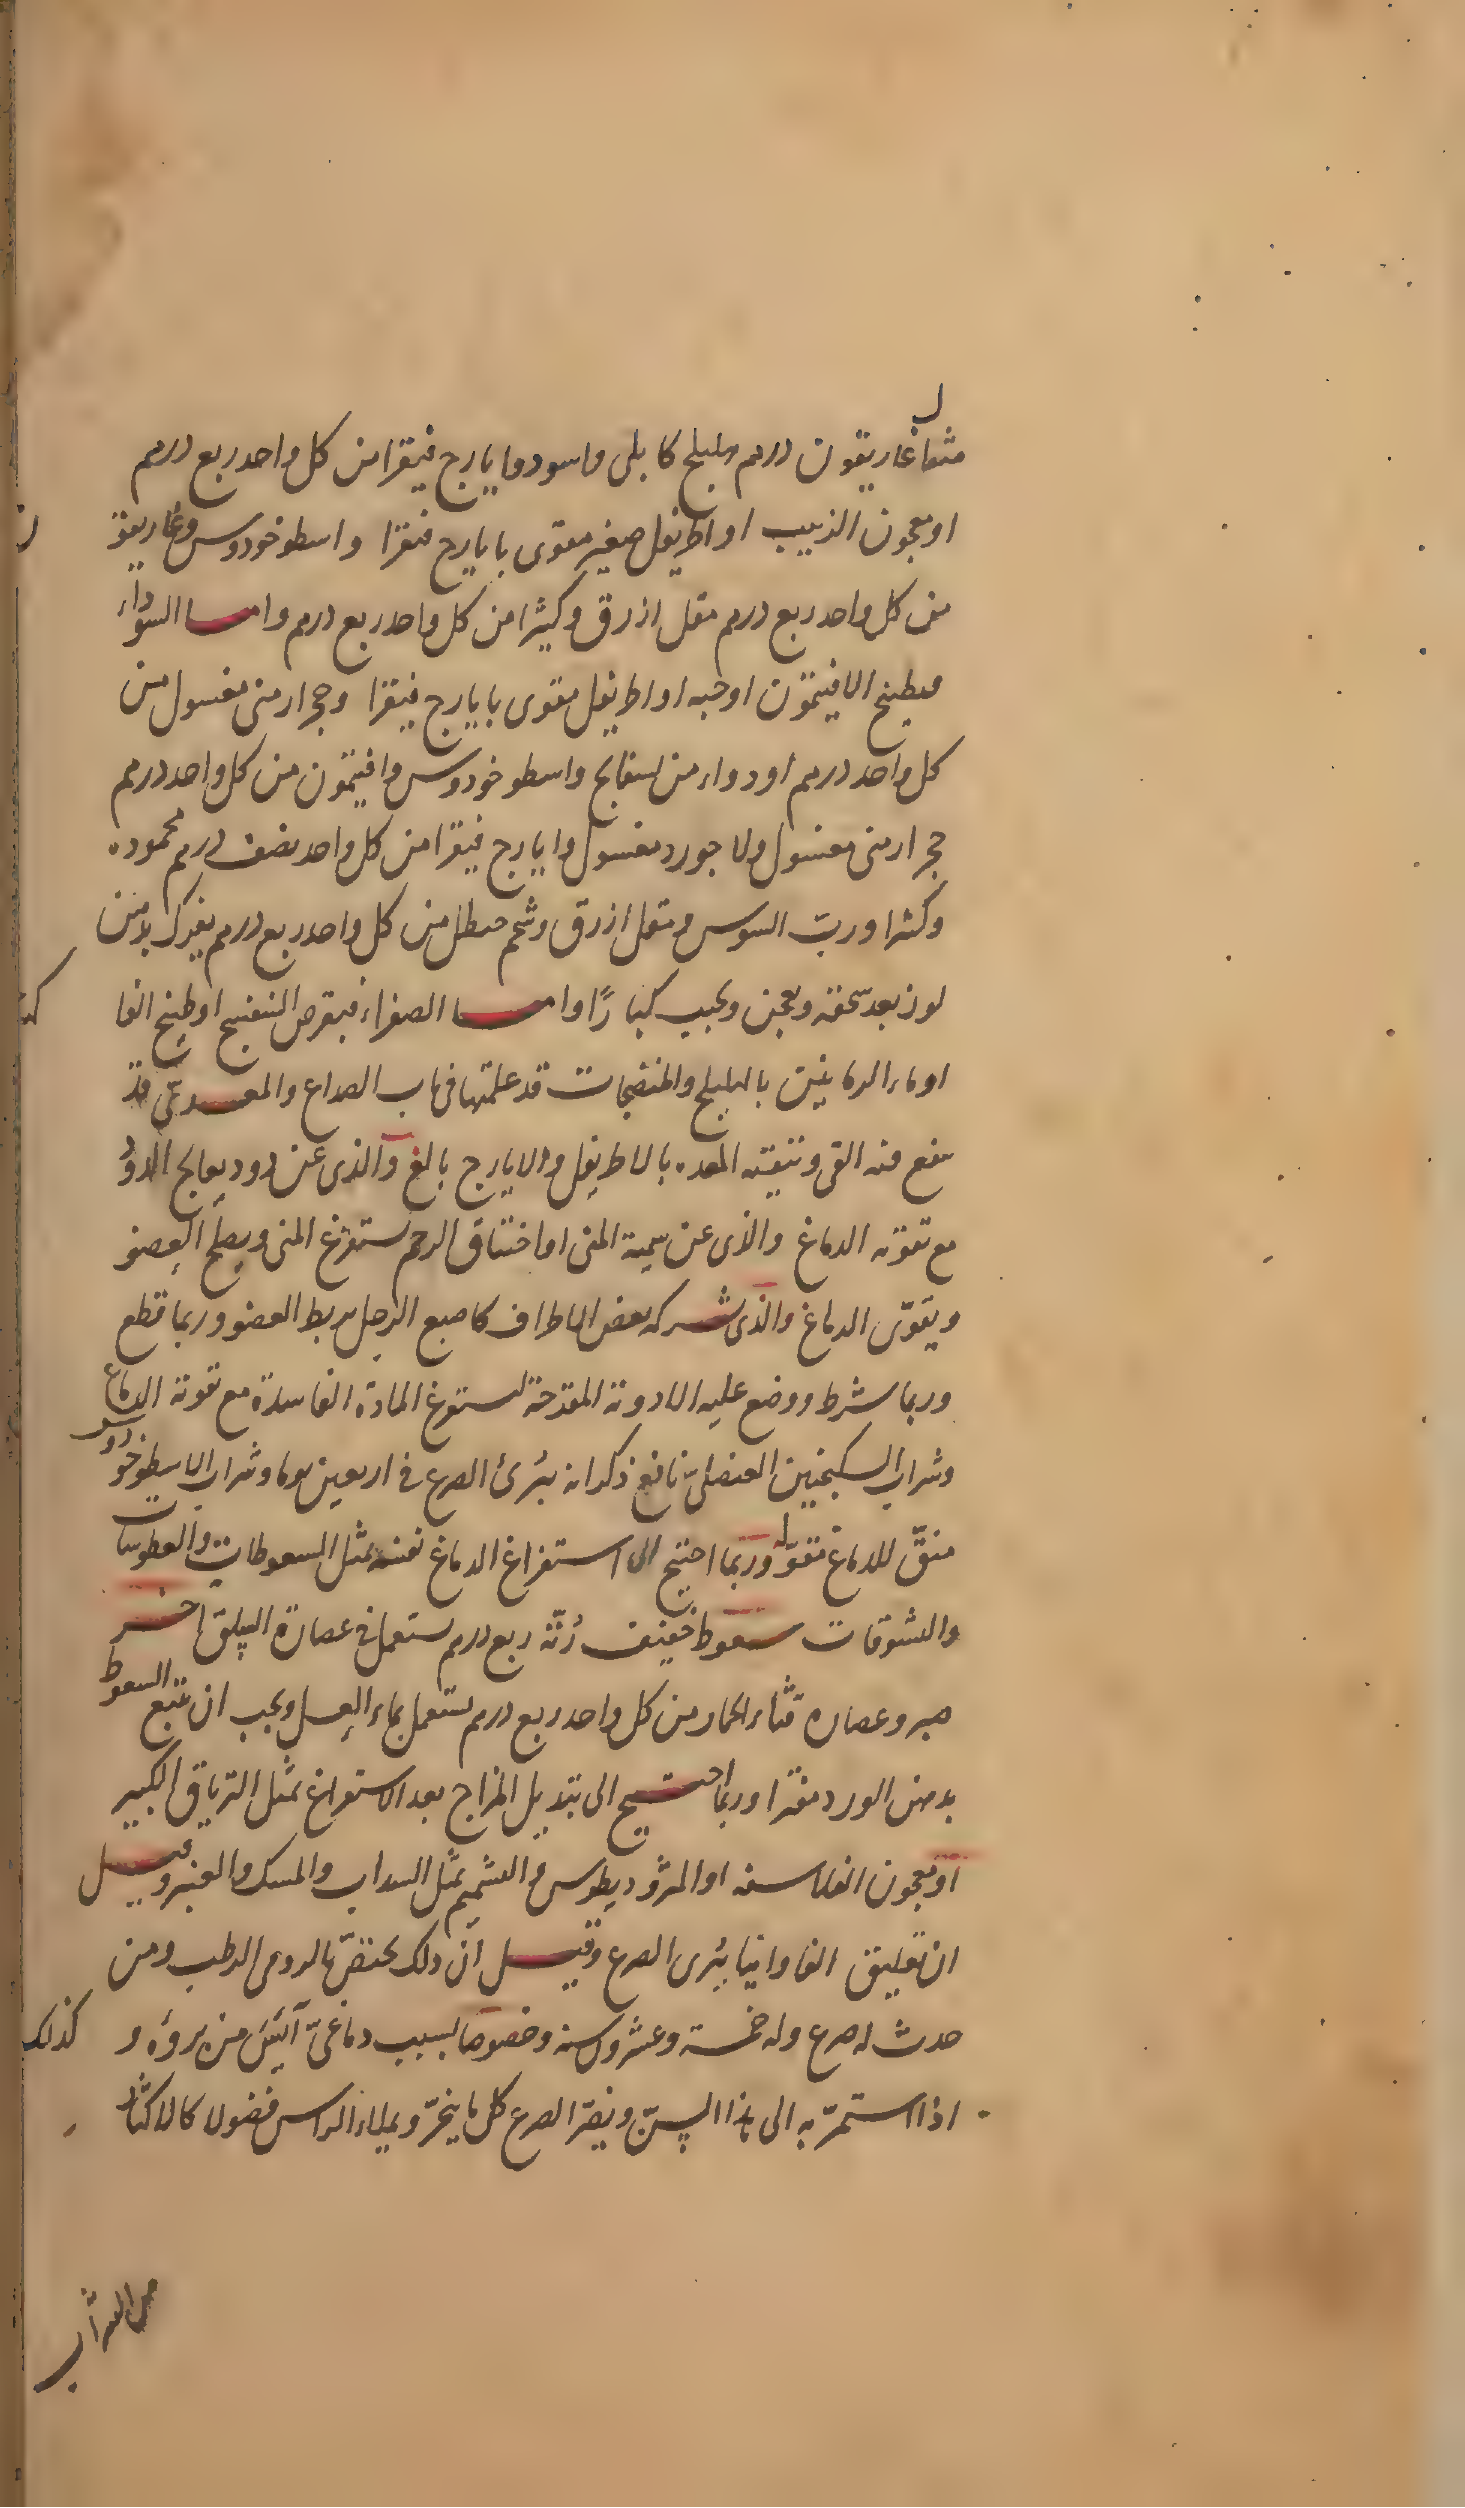 مثقال غاريقون درهم هليلج كابلى واسود وايارج فيقرا من كل واحد ربع درهم
او معجون الذبيب او اطريفل صغير مقوى بايارج فيقرا واسطوخودوس وغاريقو
من كل واحد ربع درهم مقل ازرق وكثيرا من كل واحد ربع درهم واما السوداء
فبطبيخ الافيتمون او حبه او اطريفل مقوى بايارج فيقرا وحجر ارمنى مغسول من
كل واحد درهم او دواء من بسفايج واسطوخودوس وافيتمون من كل واحد درهم
حجر ارمنى مغسول ولاجورد مغسول وايارج فيقرا من كل واحد نصف درهم محموده
وكثيرا ورب السوس ومقل ازرق وشحم حنظل من كل واحد ربع درهم يفرك بدهن
لوز بعد سحقه ويعجن ويحبب كبارًا واما الصفراء فبقرص البنفسج او طبيخ الفا
او ماء الرمانين بالهليلج والمنضجات قد علمتها فى باب الصداع والمعدىّ قد
ينفع فيه القى وتنقية المعده بالاطريفل والايارج بالغ والذى عن دود يعالج الدوُ
مع تقوية الدماغ والذى عن سمية المنى اما اختناق الرحم يستفرغ المنى ويصلح العضو
ويقوّى الدماغ والذى بشركه بعض الاطراف كاصبع الرجل يربط العضو وربما قطع
وربما شرط ووضع عليه الادوية المقرحة ليستفرغ المادة الفاسدة مع تقوية الدماغ
وشراب السكنجبين العنصلىّ نافع ذكر انه يبرئ الصرع فى اربعين يوما وشراب الاسطوخودوس
منقّ للدماغ مقوّ له وربما احتيج الى استفراغ الدماغ نفسه بمثل السعوطات والعطوسات
والنشوقات سعوط خفيف رُتّة ربع درهم يستعمل فى عصارة السلق اخر
صبر وعصاره قثاء الحمار من كل واحد ربع درهم يستعمل بماء العسل ويجب ان يتبع السعوط
بدهن الورد مفترا وربما احتيج الى تبديل المزاج بعد الاستفراغ بمثل الترياق الكبير
او معجون الفلاسفه او المثروديطوس والشميم بمثل السداب والمسك والعنبر وقيل
ان تعليق الفاوانيا يبرى الصرع وقيل ان ذلك يختصّ بالرومى الرطب ومن
حدث له صرع وله خمسة وعشرون سنه وخصوصا لسبب دماغىّ آيس من برؤه و كذلك
اذا استمرّ به الى هذا السنّ ويضر الصرع كل ما يبخرّ ويملاء الراس فضولا كالاكثار
من الشراب